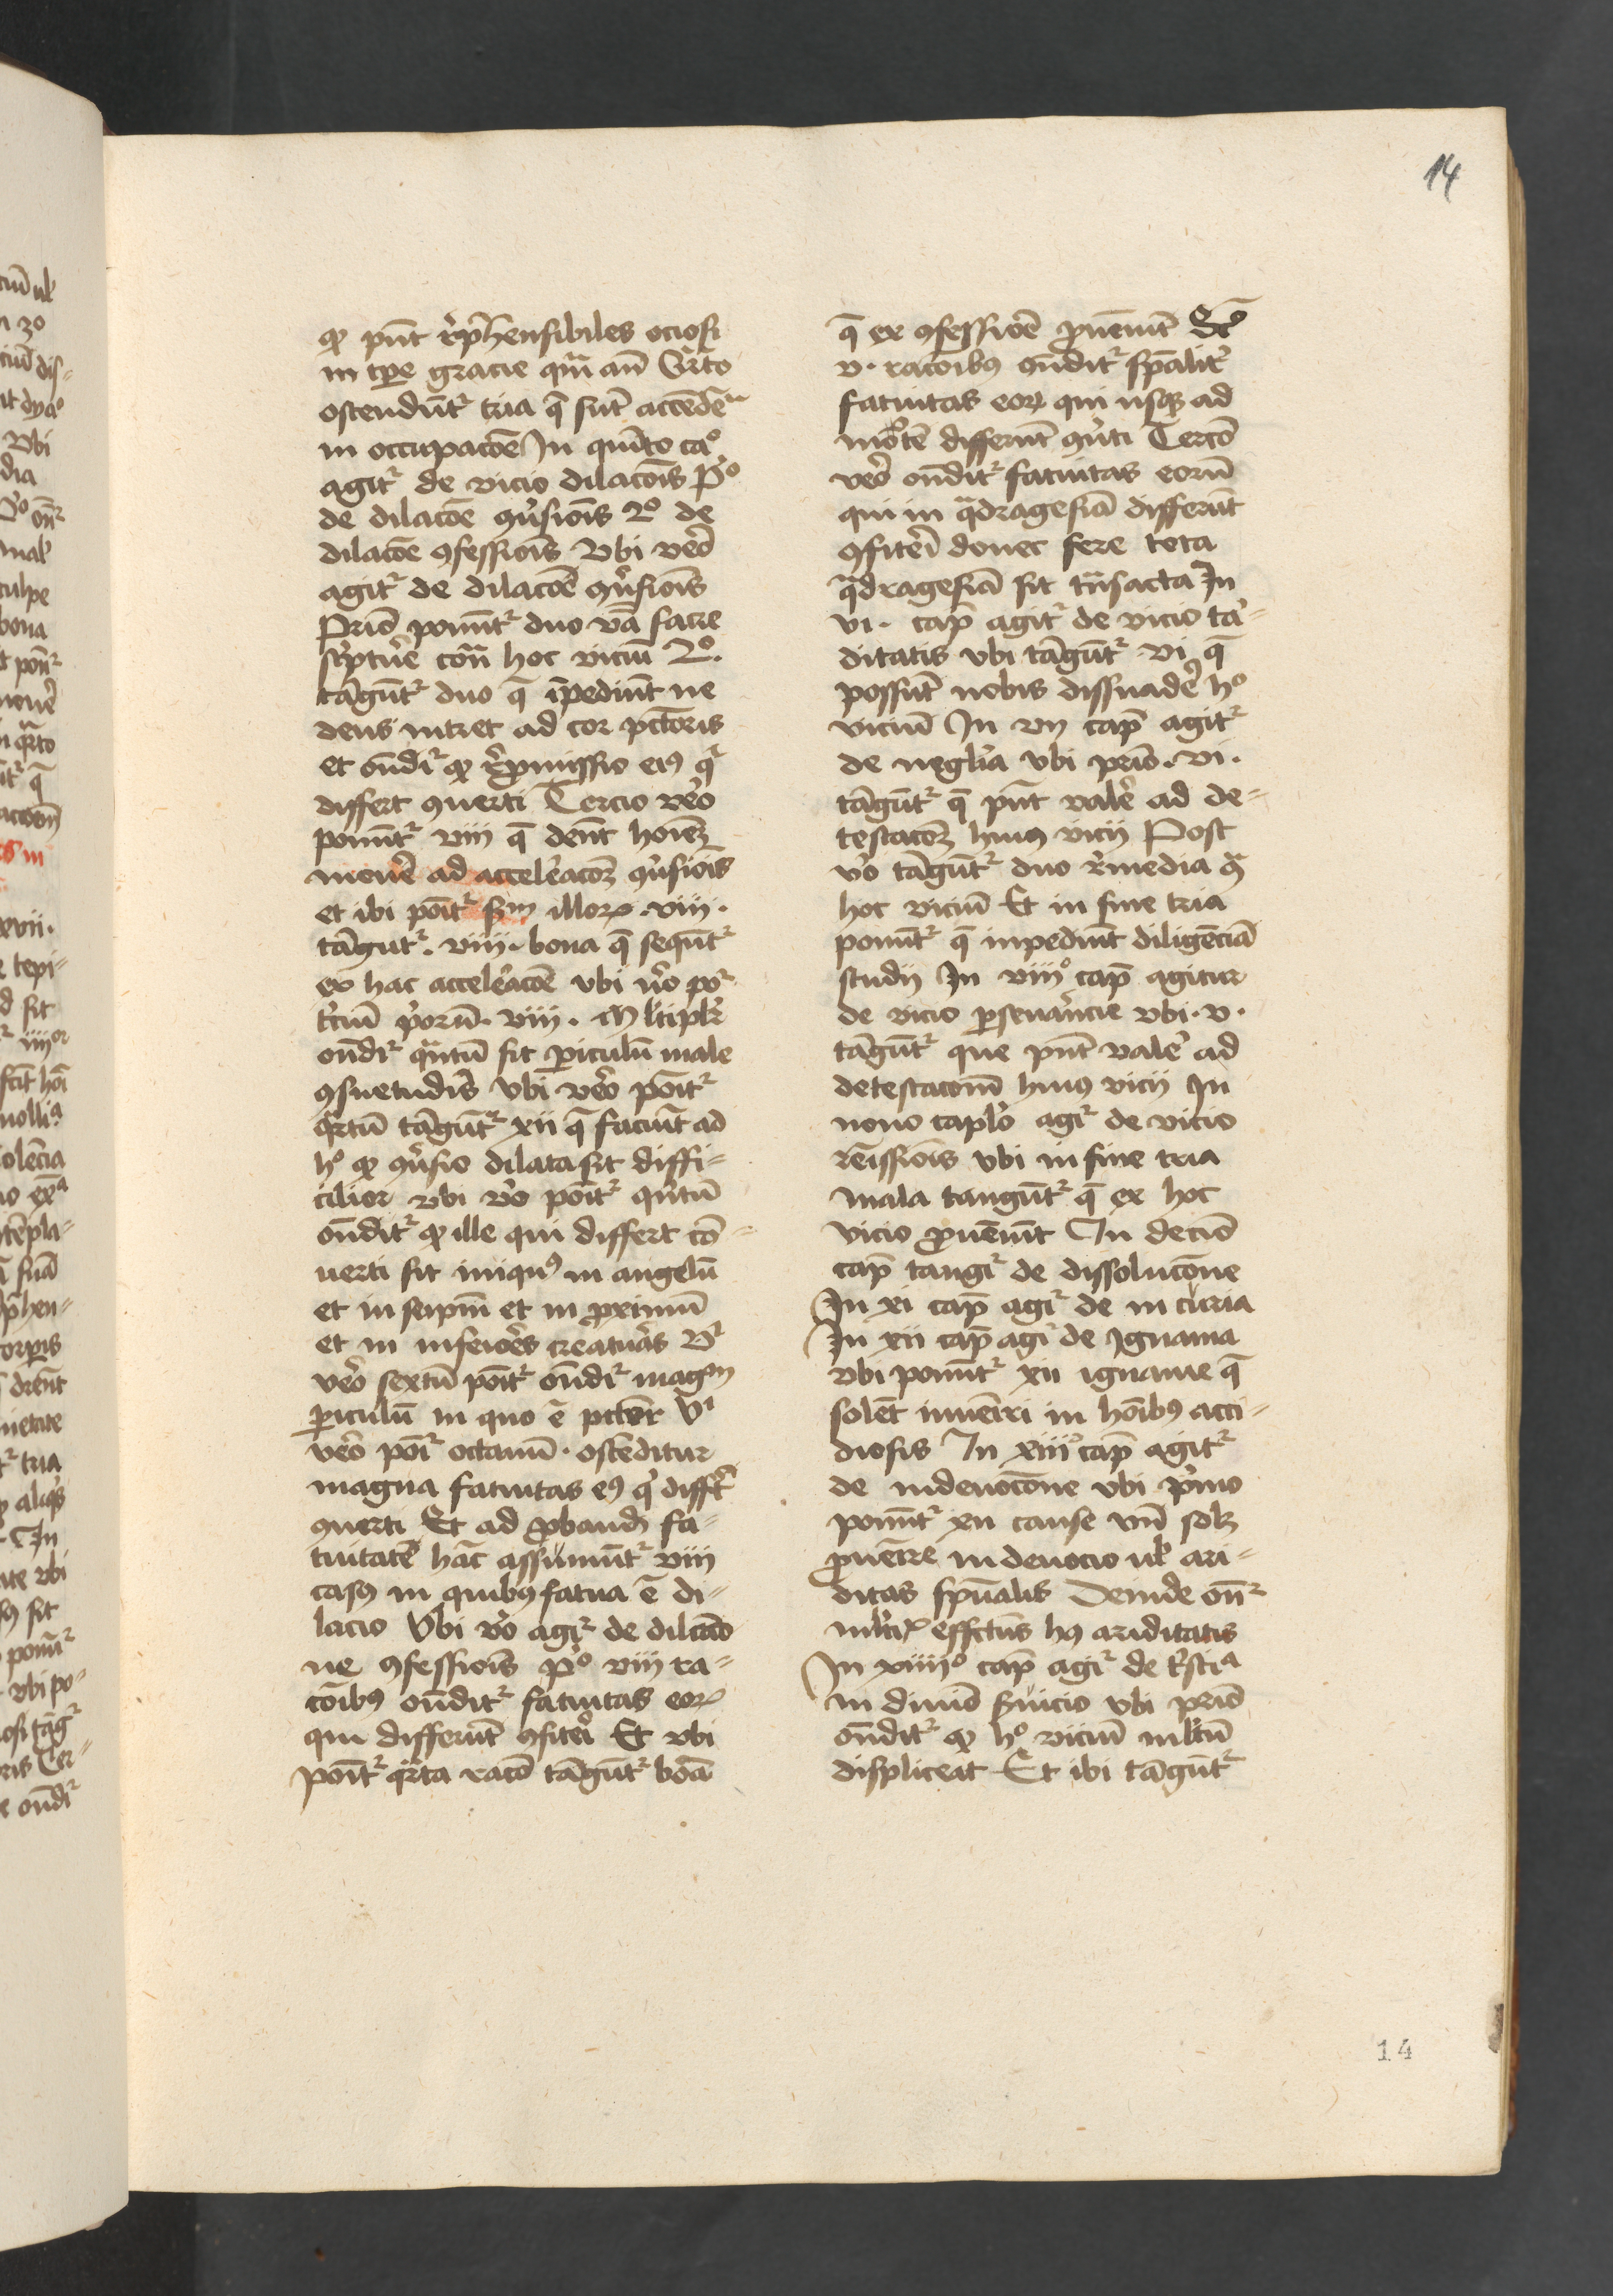 14
ꝙ pn̄t rep̄hensibiles ociosi
in tp̄e gracie qm̄ an̄ Qrto
ostendūt᷑ tria q̄ sūt attēdēᵃ
in occupacōe In quīto caº
agit᷑ de vicio dilacōis Pº
de dilacōe ꝯūsiōis 2º de
dilacōe ꝯfessiōis Vbi veō
agit᷑ de dilacōe ꝯūsiōis
Prīo ponūt᷑ duo vᵃ sacre
sc̄ptūe cōn̄ hoc viciū 2º.
tāgūt᷑ duo q̄ īpediūt ne
deus intret ad cor pctōris
et ōndi᷑ ꝙ repmissio eiꝯ qi
differt ꝯuerti Tercio veō
ponūt᷑ viii q̄ dēnt hoīeꝫ
mouē ad acceleracōeꝫ ꝯūsiōis
et ibi poīt᷑ sᵐ illoꝝ .viii.
tāgut᷑ .viii. bona q̄ sequūt᷑
ex hac acceleracōe vbi v̄o po᷑
tciū pōrū. viii. Mltiplr̄
ōndi᷑ quātū sit ꝑiculū male
ꝯsuetudīs Vbi veō poīt᷑
qrtū tāgūt᷑ xii q̄ faciūt ad
hº ꝙ ꝯūsio dilata sit diffi-
cilior vbi v̄o poīt᷑ quītū
ōndit᷑ ꝙ ille qui differt cō-
uerti sit iniquꝯ in angelū
et in seipm̄ et in ꝓximū
et in inferiōes creatuās Vⁱ
veō sextū poīt᷑ ōndi᷑ magᵐ
ꝑiculū in quo ē pctor Vⁱ
veō poī᷑ octauū. ostēditur
magna fatuitas eꝯ qi diffᵗ
ꝯuerti Et ad ꝓbandā fa-
tuitatē hāc assumūt᷑ viii
casꝯ in quibꝯ fatua ē di-
lacio Vbi v̄o agi᷑ de dilacō
ne ꝯfessiōis Pº viii ra-
cōibꝯ ōndit᷑ fatuitas eoꝝ
qui differūt ꝯfitēi Et vbi
poīt᷑ qrta racō tāgūt᷑ boᵃ
q̄ ex ꝯfessiōe ꝓueniūt Scᵒ
v. racōibꝯ ōndit᷑ sp̄alit᷑
fatuitas eoꝝ qui usqꝫ ad
mortē differūt ꝯuti Terciō
veō ōndit᷑ fatuitas eorū
qui in qdragesiā differūt
ꝯfitēi donec fere tota
qdragesiā sit trāsacta In
vi. cap̄ agit᷑ de vicio tar-
ditatis vbi tāgūt᷑ vi q̄
possūt nobis dissuadē hº
viciū In vii cap̄ agit᷑
de neglīa vbi prīo. vi.
tāgūt᷑ q̄ pn̄t valē ad de-
testacōeꝫ huiꝯ vicii Post
v̄o tāgūt᷑ duo remedia ꝯᵃ
hoc viciū Et in fine tria
ponūt᷑ q̄ inpediūt diligēciā
studij In viiiº cap̄ agitur
de vicio ꝑseuāncie vbi. v.
tāgūt᷑ que pn̄t valē ad
detestacōnē huiꝯ vicii In
nono caplo agi᷑ de vicio
remissiōis vbi in fine tria
mala tangūt᷑ q̄ ex hoc
vicio ꝓueniūt In deciō
cap̄ tangi᷑ de dissolucōne
In xi cap̄ agi᷑ de incuria
In xii cap̄ agi᷑ de Ignauia
vbi ponūt᷑ xii ignauie q̄
solēt inueiri in hoībꝯ acci-
diosis In xiiiº cap̄ agit᷑
de indeuocōne vbi p̄mo
ponūt᷑ xii cause vn̄ solꝫ
ꝓueīre indeuocio ul̄ ari-
ditas spūalis Deinde ōn᷑
ml̄ti᷑ effctūs hꝯ ariditatis
In xiiiiº cap̄ agi᷑ de tⁱstiᵃ
in diuīo suicio vbi prīo
ōndit᷑ ꝙ hº viciū ml̄tū
displiceat Et ibi tāgūt᷑
14